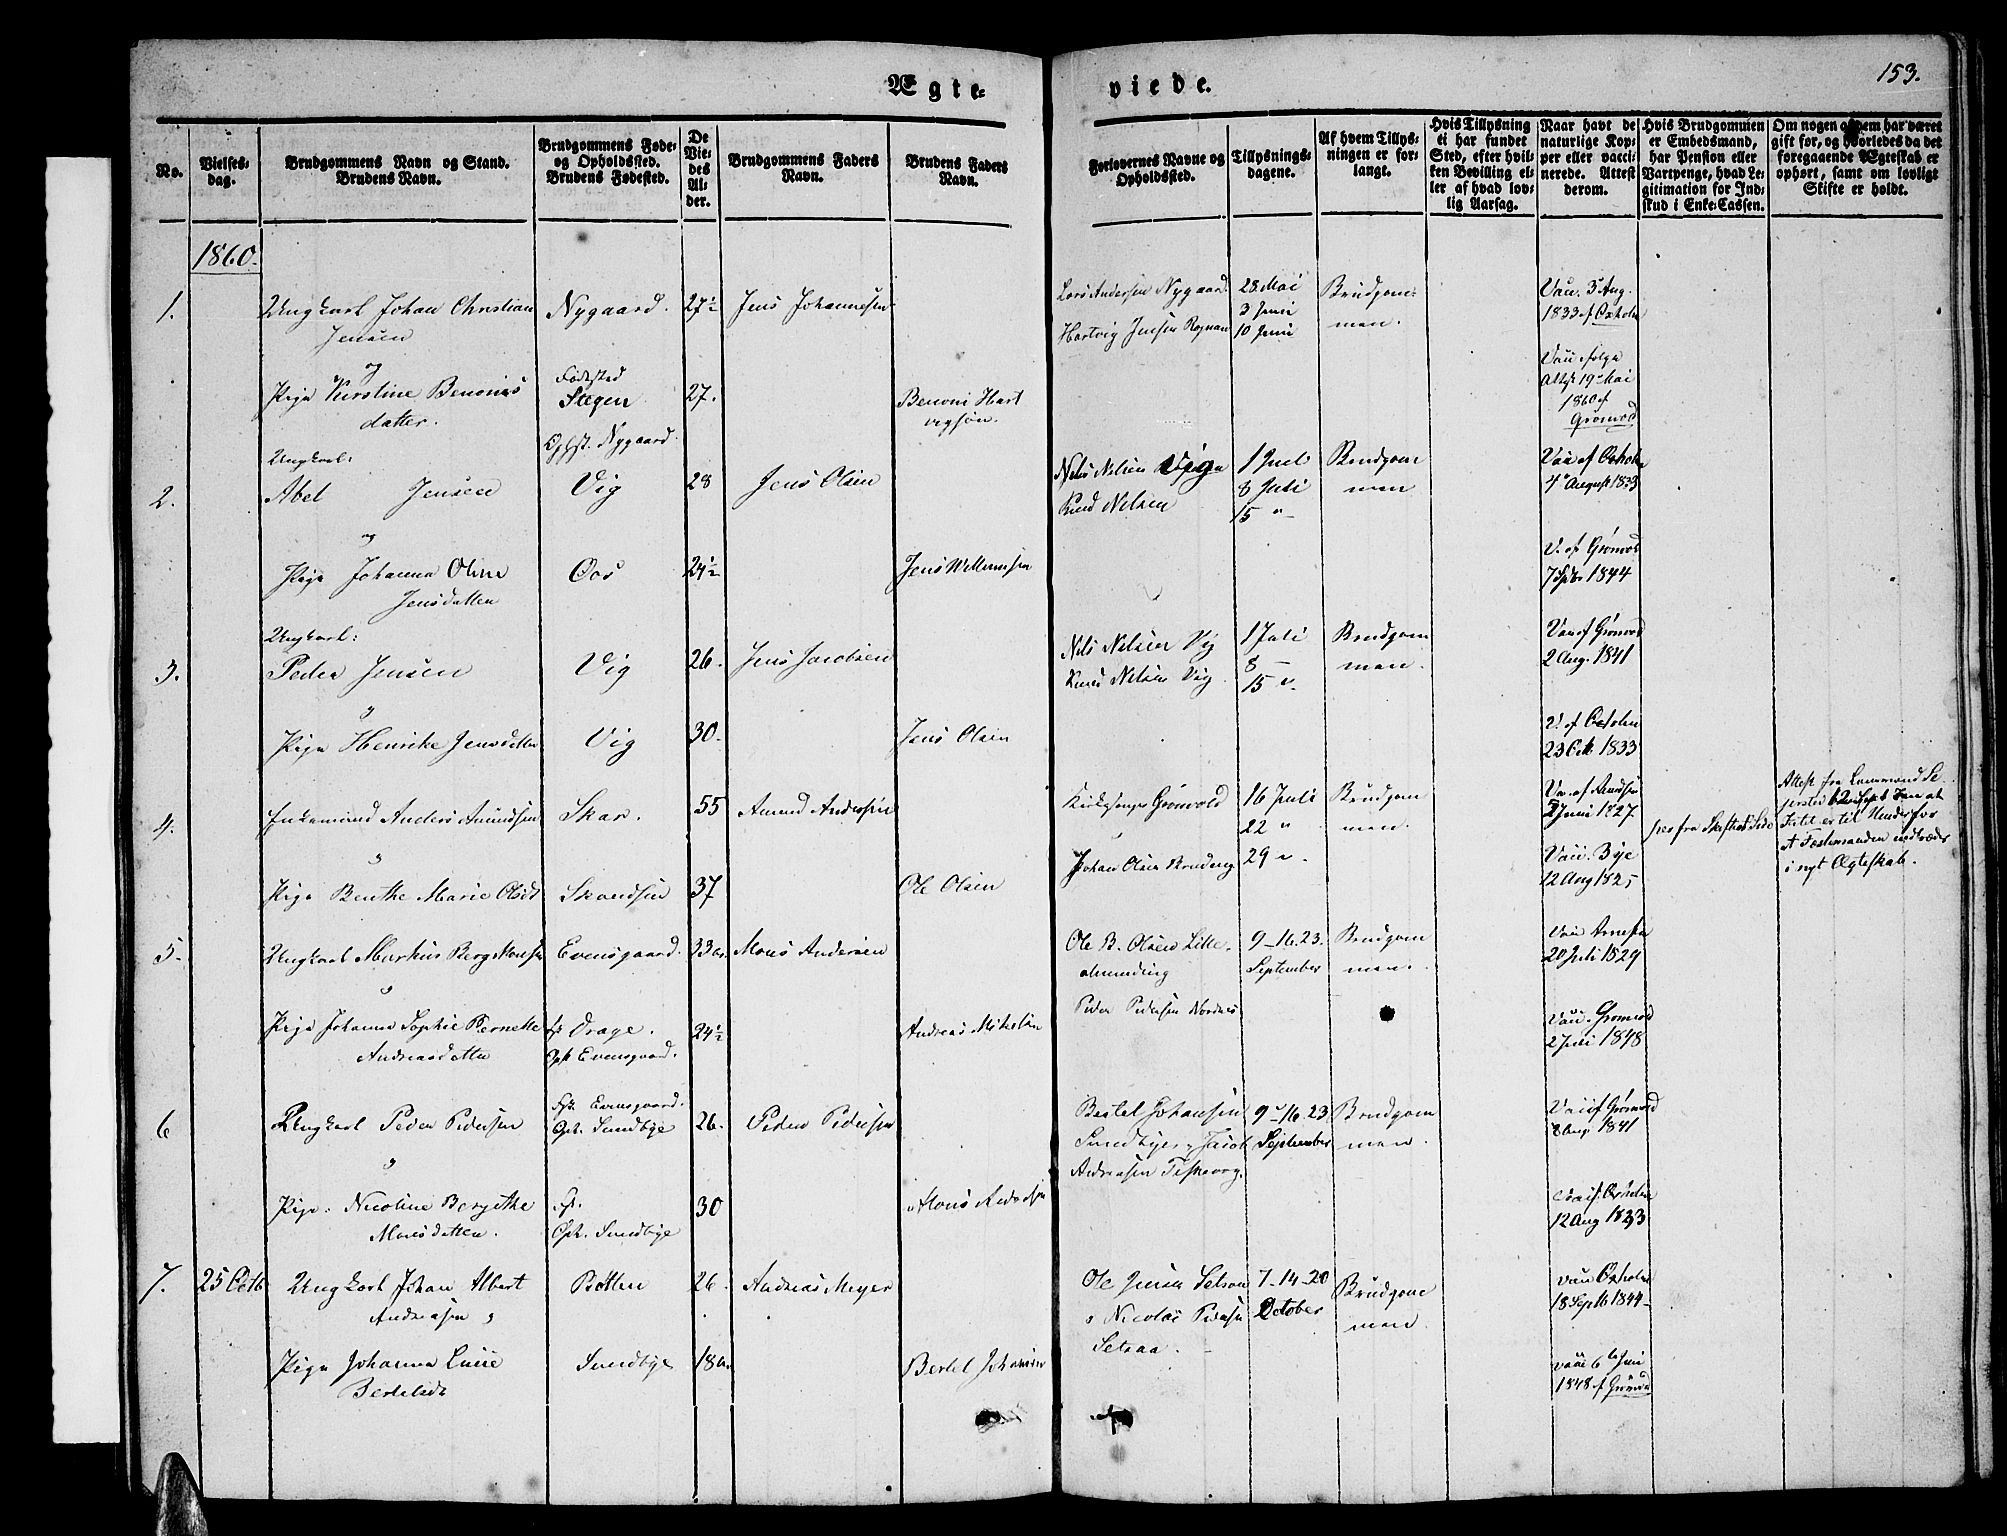 153.
Ægte-
viede.
No.
Vielses-
dag.
Brudgommens Navn og Stand.
Brudens Navn.
Brudgommens Føde-
og Opholdssted.
Brudens Fødested.
De
Vie-
des
Al-
der.
Brudgommens Faders
Navn.
Brudens Faders
Navn.
Forlovernes Navne og
Opholdssted.
Tillysnings-
dagene.
Af hvem Tillys-
ningen er for-
langt.
Hvis Tillysning
ei har fundet
Sted, efter hvil-
ken Bevilling el-
ler af hvad lov-
lig Aarsag.
Naar havt de
naturlige Kop-
per eller vacci-
nerede. Attest
derom.
Hvis Brudgommen
er Embedsmand,
har Pension eller
Vartpenge, hvad Le-
gitimation for Ind-
skud i Enke-Cassen.
Om nogen af dem har været
gift før, og hvorledes da det
foregaaende Ægteskab er
ophørt, samt om lovligt
Skifte er holdt.
1860.
1.
Ungkarl Johan Christian
Jensen
Nygaard.
27½
Jens Johannesen
Lars Andersen Nygaard
Hartvig Jensen Rognan
28. Mai
3 Juni
10 Juni
Brudgom-
men.
Vac. 3 Aug.
1833 af Oxholm
og
Pige Kirstine Benonis
datter.
Fødested
Stegen
Ophst. Nygaard.
27.
Benoni Hart
vigsøn.
Vac ifølge
Attest 19 Mai
1860 af
Grønvold
2.
Ungkarl:
Abel Jensen
Vig
28
Jens Olsen
Nels Nelsen Vig
Knud Nelsen
1 Juli
8 Juli
15 "
Brudgom
men
Vac af Oxholm
4 August 1833
og
Pige Johanna Oline
Jensdatter
Oos
24½
Jens Wellumsen
V. af Grønvold
7 Sptbr 1844
3.
Ungkarl:
Peder Jensen
Vig
26.
Jens Jacobsen
Nels Nelsen Vig
Knud Nelsen Vig.
1 Juli
8 –
15 ".
Brudgom
men.
Vac af Grønvold
2 Aug. 1841
og
Pige Henrike Jensdatter
Vig
30.
Jens Olsen
V. af Oxholm
23 Oct. 1833
4.
Enkemand Anders Amundsen
Skar.
55
Amund Andersen
Kirkesanger Grønvold
Johan Olsen
16 Juli
22 "
29 ".
Brudgom
men.
Juni 1827.
Attest fra Lensmand
i nyt Ægteskab.
og
Pige Benthe Marie Olsdt
37
Ole Olsen
12 Aug 1825
5.
Ungkarl Markus Berg Monsen
Evensgaard.
33
Mons Andersen
Ole B. Olsen Lille
almending
Peder Pedersen Nordnes
9–16.23.
September
Brudgom
men.
20 Juli 1829
og
Pige Johanna Sophie Pernette
Andreasdatter
Drage.
Oph Evensgaard.
24½
Andreas Mikelsen
Vac. Grønvold
2 Juni 1848
6
Ungkarl Peder Pedersen
Evensgaard.
Oph. Sundbye
26.
Peder Pedersen
Bertel Johansen
Sundbye og Jacob
Andreasen Fiskevog.
9–16.23
September
Brudgom
men.
Vac af Grønvold
Aug. 1841
og
Pige: Nicoline Bergithe
Monsdatter.
Oph. Sundbye
30
Mons Andersen
12 Aug 1833
7.
25 Octb
Ungkarl Johan Albert
Andreasen og
Botten
26.
Andreas Meyer
Ole Jensen Setsaa
Nicolai Pedersen
Setsaa.
7–14–20
October
Brudgom
men.
Vac Oxholm
18 Septb 1844
Pige Johanna Luise
Bertelsdt
Sundbye
18
Bertel Johansen
vac 6 Juni
1848 af Grønvold